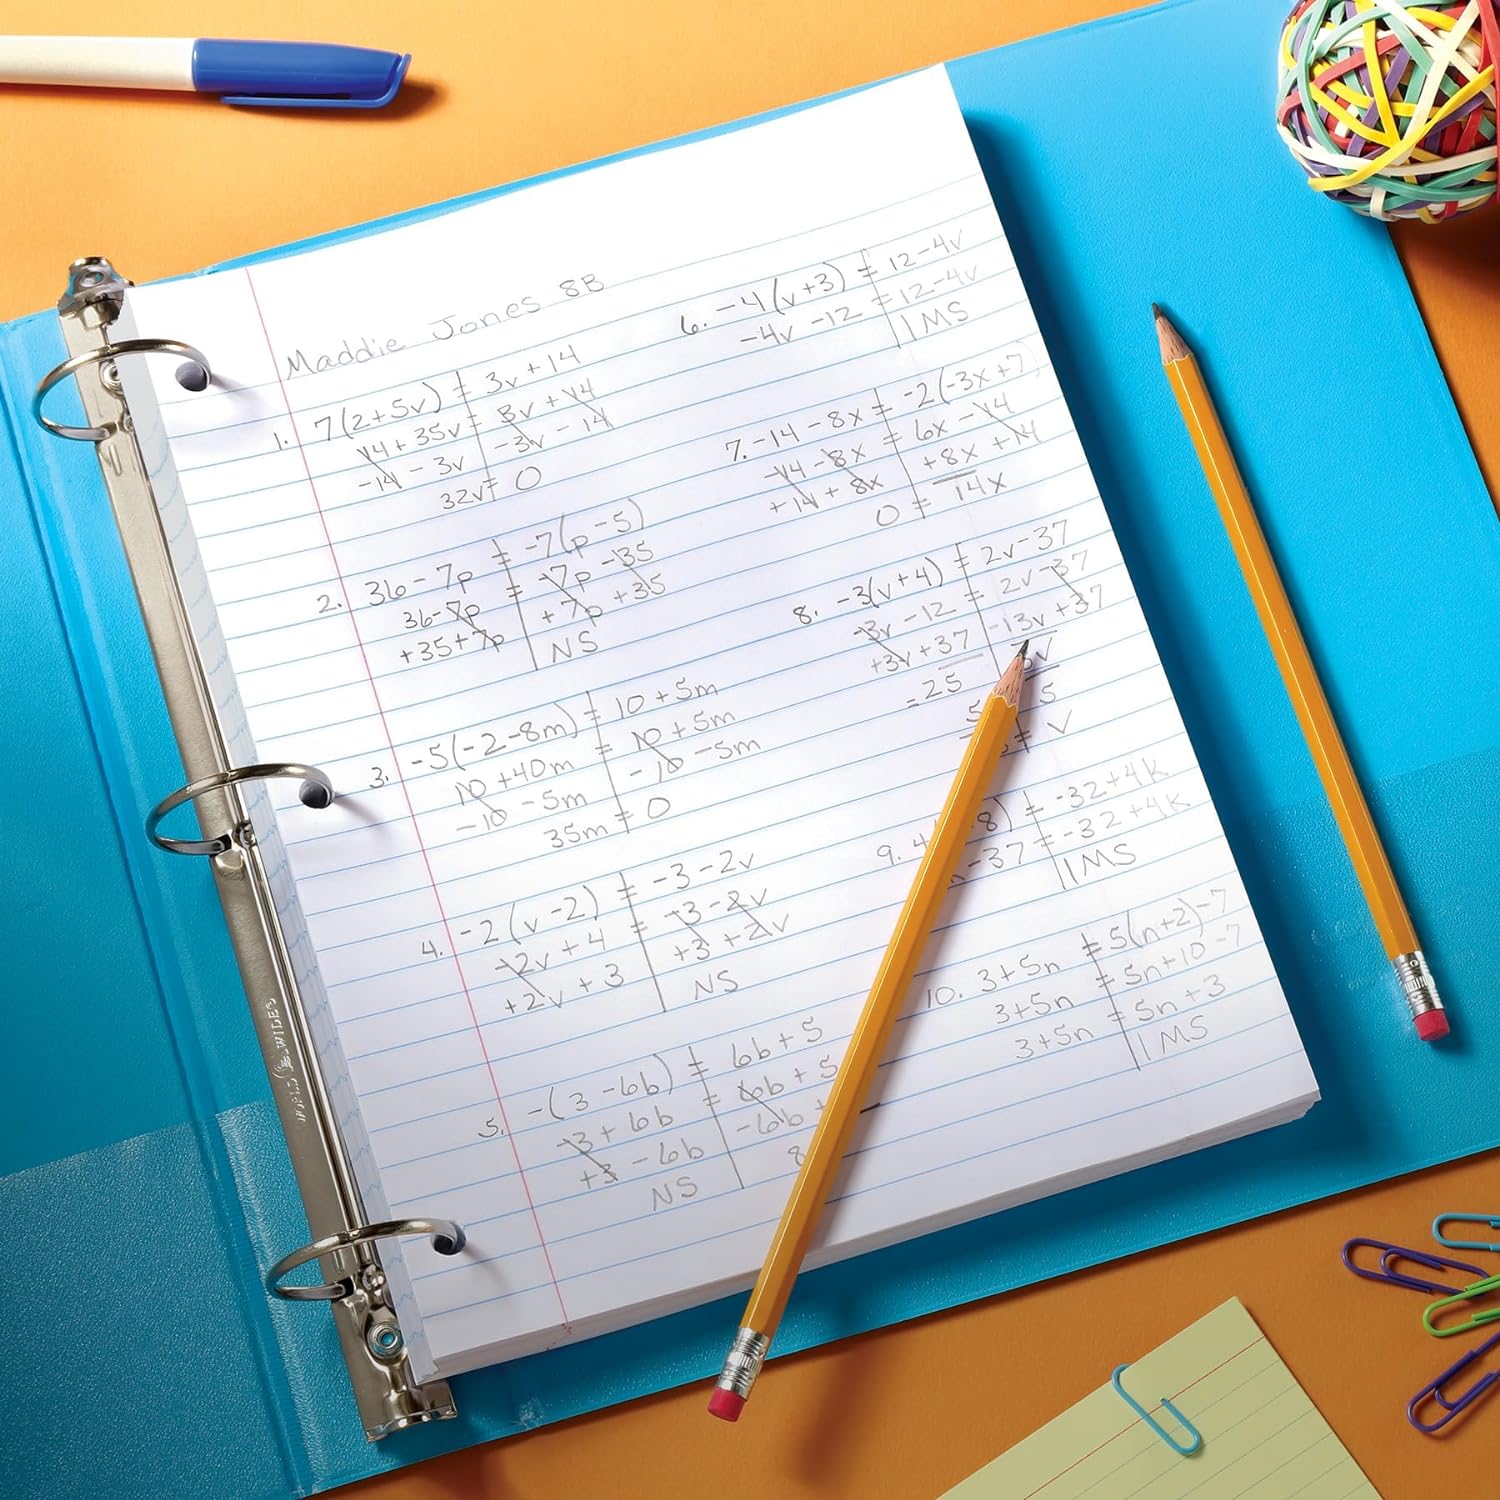 Maddie Jones 8B
1. 7(2+5v) = 3v + 14
14 + 35v = 3v + 14
-14 - 3v -3v - 14
32v = 0
2. 36 - 7p = -7(p - 5)
36 - 7p = -7p - 35
+35 + 7p + 7p + 35
NS
3. -5(-2-8m) = 10 + 5m
10 + 40m = 10 + 5m
-10 - 5m -10 - 5m
35m = 0
4. -2(v - 2) = -3 - 2v
-2v + 4 = -3 - 2v
+2v + 3 +3 + 2v
NS
5. -(3 - 6b) = 6b + 5
-3 + 6b = 6b + 5
+3 - 6b -6b +
NS 8
6. -4(v+3) = 12 - 4v
-4v - 12 = 12 - 4v
IMS
7. -14 - 8x = -2(-3x + 7)
-14 - 8x = 6x - 14
+14 + 8x +8x + 14
0 = 14x
8. -3(v + 4) = 2v - 37
-3v - 12 = 2v - 37
+3v + 37 -13v + 37
= 25 5v
5 5
= v
9. 4 8) = -32 + 4k
-37 = -32 + 4k
IMS
10. 3 + 5n = 5(n+2) - 7
3 + 5n = 5n + 10 - 7
3 + 5n = 5n + 3
IMS
WORLD WIDE